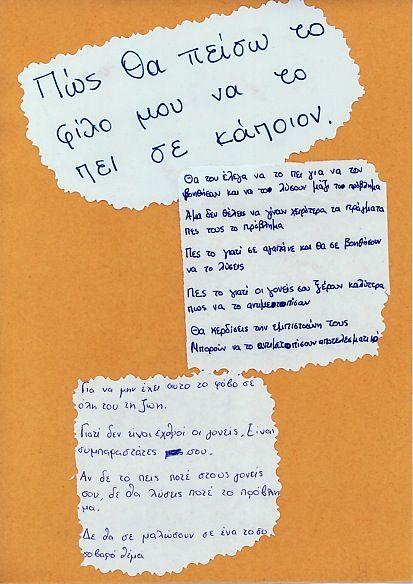 Πώς θα πείσω το
φίλο μου να το
πει σε κάποιον.
Θα του έλεγα να το πει για να τον
βοηθήσουν και να το λύσουν μαζί το πρόβλημα
Άμα δεν θέλεις να γίνουν χειρότερα τα πράγματα
πες τους το πρόβλημα
Πες το γιατί σε αγαπάνε και θα σε βοηθήσουν
να το λύσεις
Πες το γιατί οι γονείς σου ξέρουν καλύτερα
πως να το αντιμετοπίσουν
Θα κερδίσεις την εμπιστοσύνη τους
Μπορούν να το αντιμετοπίσουν αποτελεσματικά
Για να μην έχει αυτό το φόβο σε
όλη του τη ζωή.
Γιατί δεν είναι εχθροί οι γονείς, Είναι
συμπαραστάτες σου.
Αν δε το πεις ποτέ στους γονείς
σου, δε θα λύσεις ποτέ το πρόβλη
μα.
Δε θα σε μαλώσουν σε ένα τοσο
σοβαρό θέμα